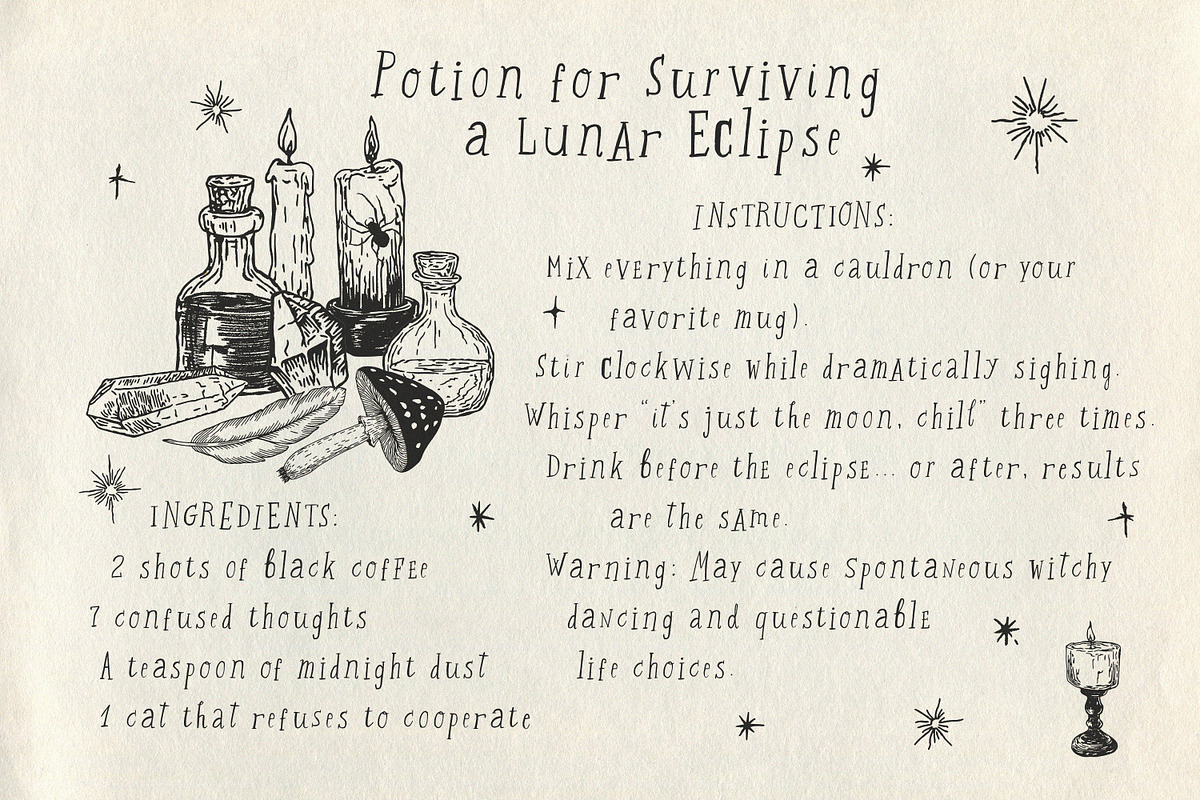 Potion for Surviving
a Lunar Eclipse
INGREDIENTS:
2 shots of black coffee
7 confused thoughts
A teaspoon of midnight dust
1 cat that refuses to cooperate
INSTRUCTIONS:
Mix everything in a cauldron (or your
favorite mug).
Stir clockwise while dramatically sighing.
Whisper “it's just the moon, chill” three times.
Drink before the eclipse... or after, results
are the same.
Warning: May cause spontaneous witchy
dancing and questionable
life choices.